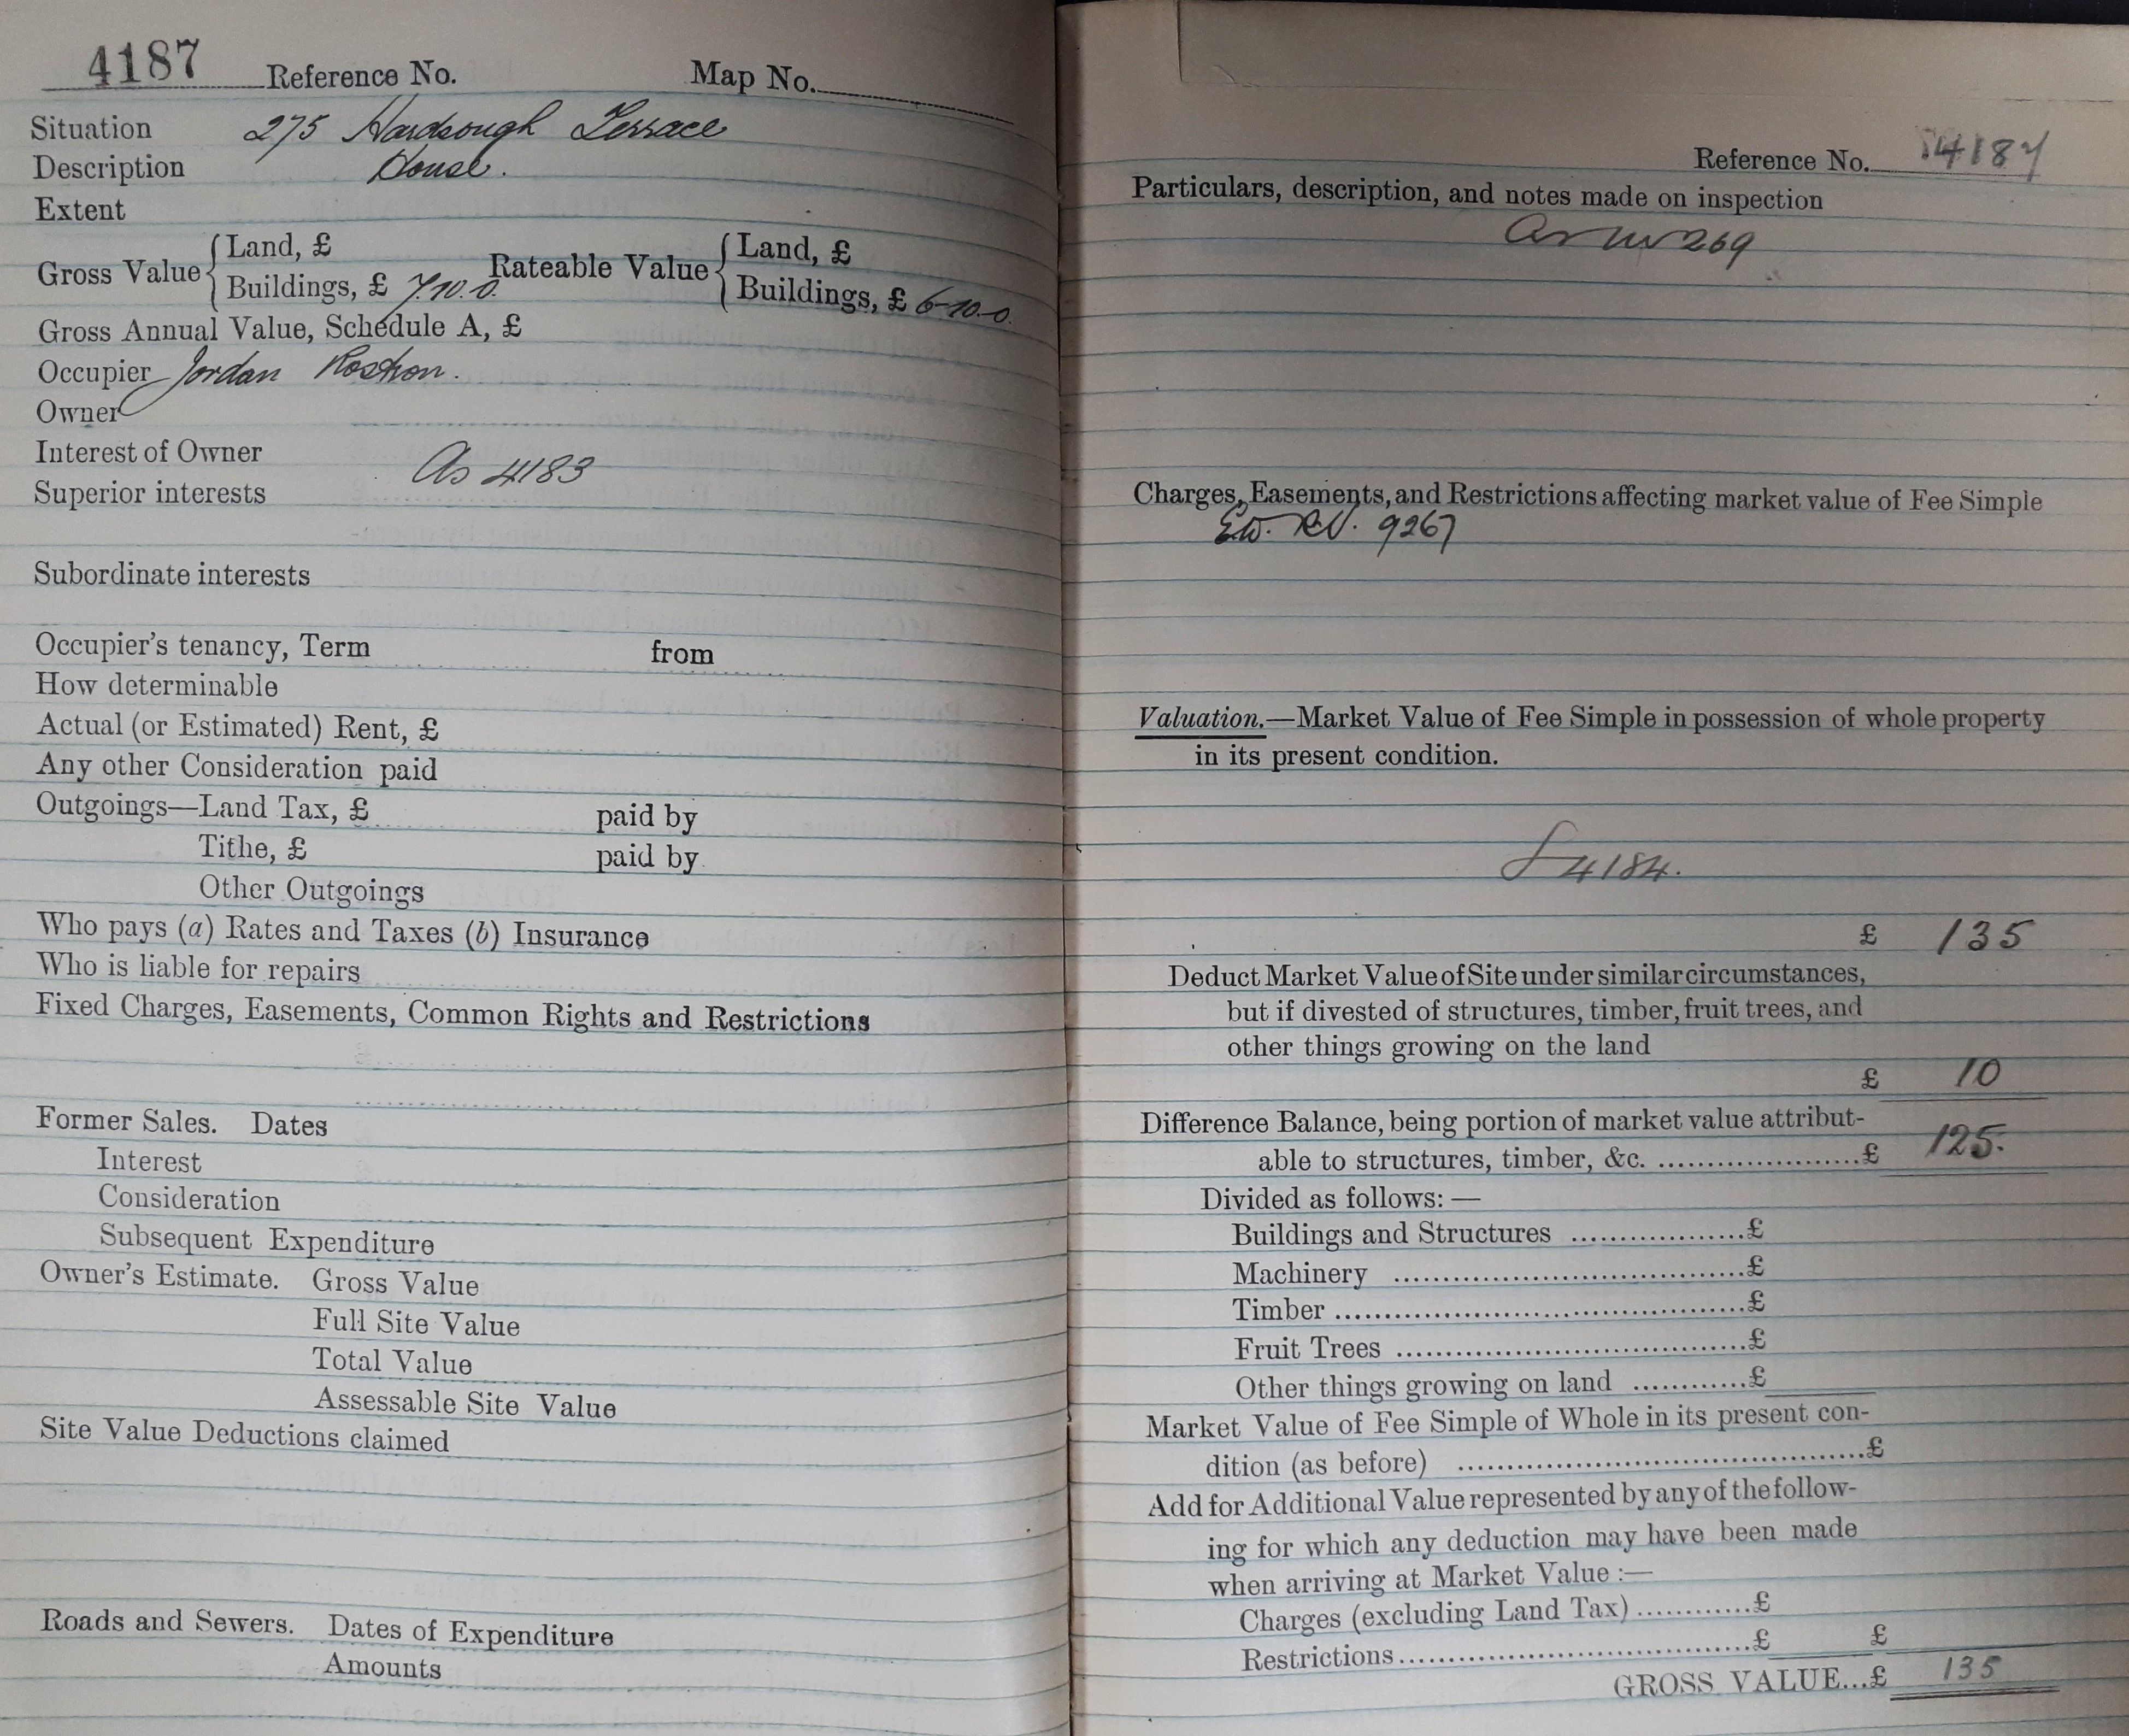 4187 Reference No. Map No.
Situation 275 Hardsough Terrace
Description House.
Extent
Gross Value { Land, £ Rateable Value { Land, £
Buildings, £ 7.10.0 Buildings, £ 6-10-0.
Gross Annual Value, Schedule A, £
Occupier Jordan Rostron.
Owner
Interest of Owner
As 4183
Superior interests
Subordinate interests
Occupier's tenancy, Term from
How determinable
Actual (or Estimated) Rent, £
Any other Consideration paid
Outgoings—Land Tax, £ paid by
Tithe, £ paid by
Other Outgoings
Who pays (a) Rates and Taxes (b) Insurance
Who is liable for repairs
Fixed Charges, Easements, Common Rights and Restrictions
Former Sales. Dates
Interest
Consideration
Subsequent Expenditure
Owner's Estimate. Gross Value
Full Site Value
Total Value
Assessable Site Value
Site Value Deductions claimed
Roads and Sewers. Dates of Expenditure
Amounts
Reference No. 4187
Particulars, description, and notes made on inspection
As 269
Charges, Easements, and Restrictions affecting market value of Fee Simple
9267
Valuation.—Market Value of Fee Simple in possession of whole property
in its present condition.
4184.
£ 135
Deduct Market Value of Site under similar circumstances,
but if divested of structures, timber, fruit trees, and
other things growing on the land
£ 10
Difference Balance, being portion of market value attribut-
able to structures, timber, &c. .....................£ 125.
Divided as follows:—
Buildings and Structures ..................£
Machinery ....................................£
Timber ..........................................£
Fruit Trees ....................................£
Other things growing on land ............£
Market Value of Fee Simple of Whole in its present con-
dition (as before) ..........................................£
Add for Additional Value represented by any of the follow-
ing for which any deduction may have been made
when arriving at Market Value :—
Charges (excluding Land Tax) ............£
Restrictions ....................................£ £
GROSS VALUE...£ 135